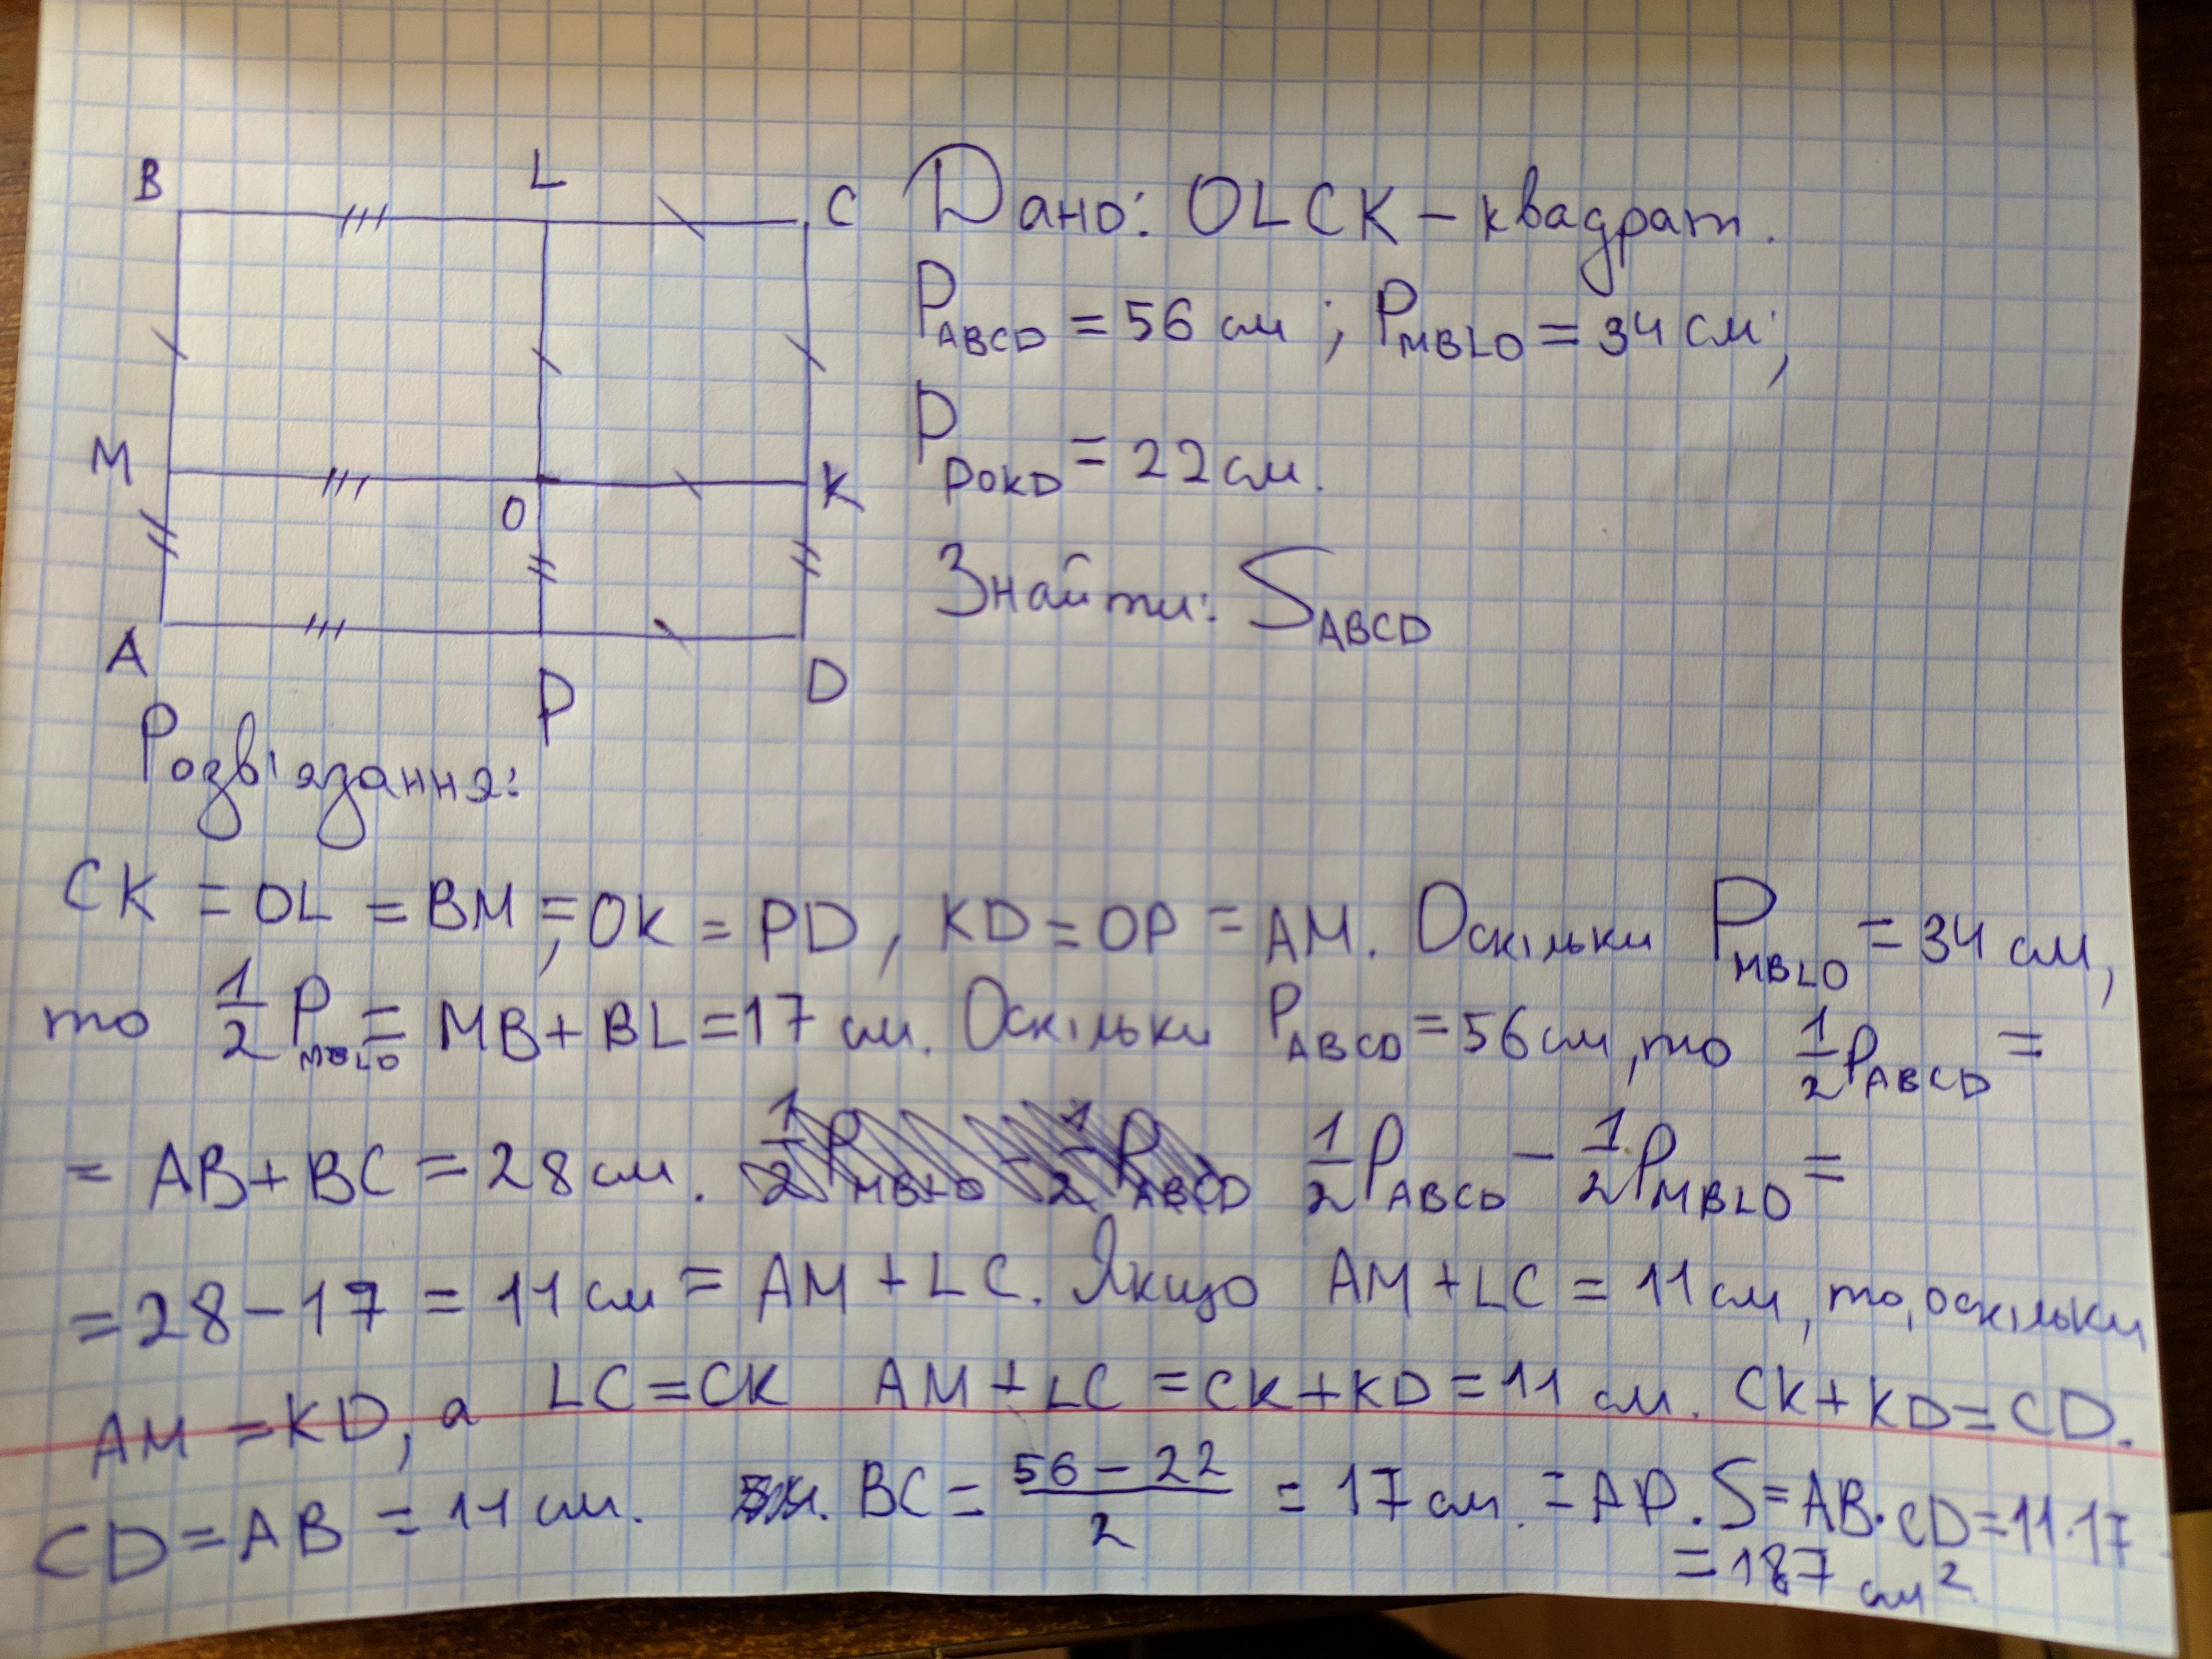 B L C
M O K
A P D
Дано: OLCK – квадрат.
P ABCD = 56 см; P MBLO = 34 см;
P POKD = 22 см.
Знайти: S ABCD
Розв'язання:
CK = OL = BM; = OK = PD, KD = OP = AM. Оскільки P MBLO = 34 см,
то 1/2 P MBLO = MB + BL = 17 см. Оскільки P ABCD = 56 см, то 1/2 P ABCD =
= AB + BC = 28 см. 1/2 P ABCD – 1/2 P MBLO =
= 28 – 17 = 11 см = AM + LC. Якщо AM + LC = 11 см, то, оскільки
AM = KD, а LC = CK AM + LC = CK + KD = 11 см. CK + KD = CD.
CD = AB = 11 см. BC = (56 – 22)/2 = 17 см. = AD. S = AB · CD = 11 · 17
= 187 см²